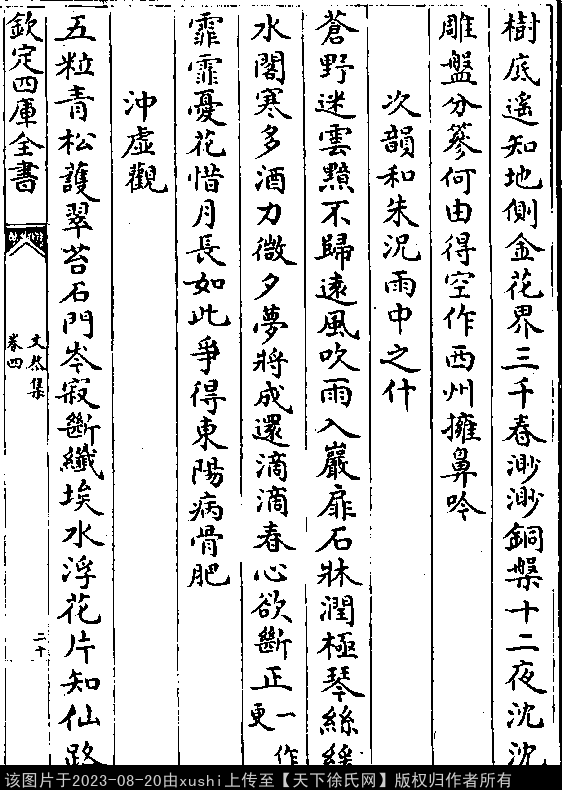 樹底遙知地側金花界三千春渺渺銅槃十二夜沈沈
雕盤分篸何由得空作西州擁鼻吟
次韻和朱況雨中之什
蒼野迷雲黯不歸遠風吹雨入巖扉石牀潤極琴絲緩
水閣寒多酒力微夕夢將成還滴滴春心欲斷正一作更
霏霏憂花惜月長如此爭得東陽病骨肥
沖虛觀
五粒青松護翠苔石門岑寂斷纖埃水浮花片知仙路
欽定四庫全書
文恭集
卷四
二十
该图片于2023-08-20由xushi上传至【天下徐氏网】版权归作者所有